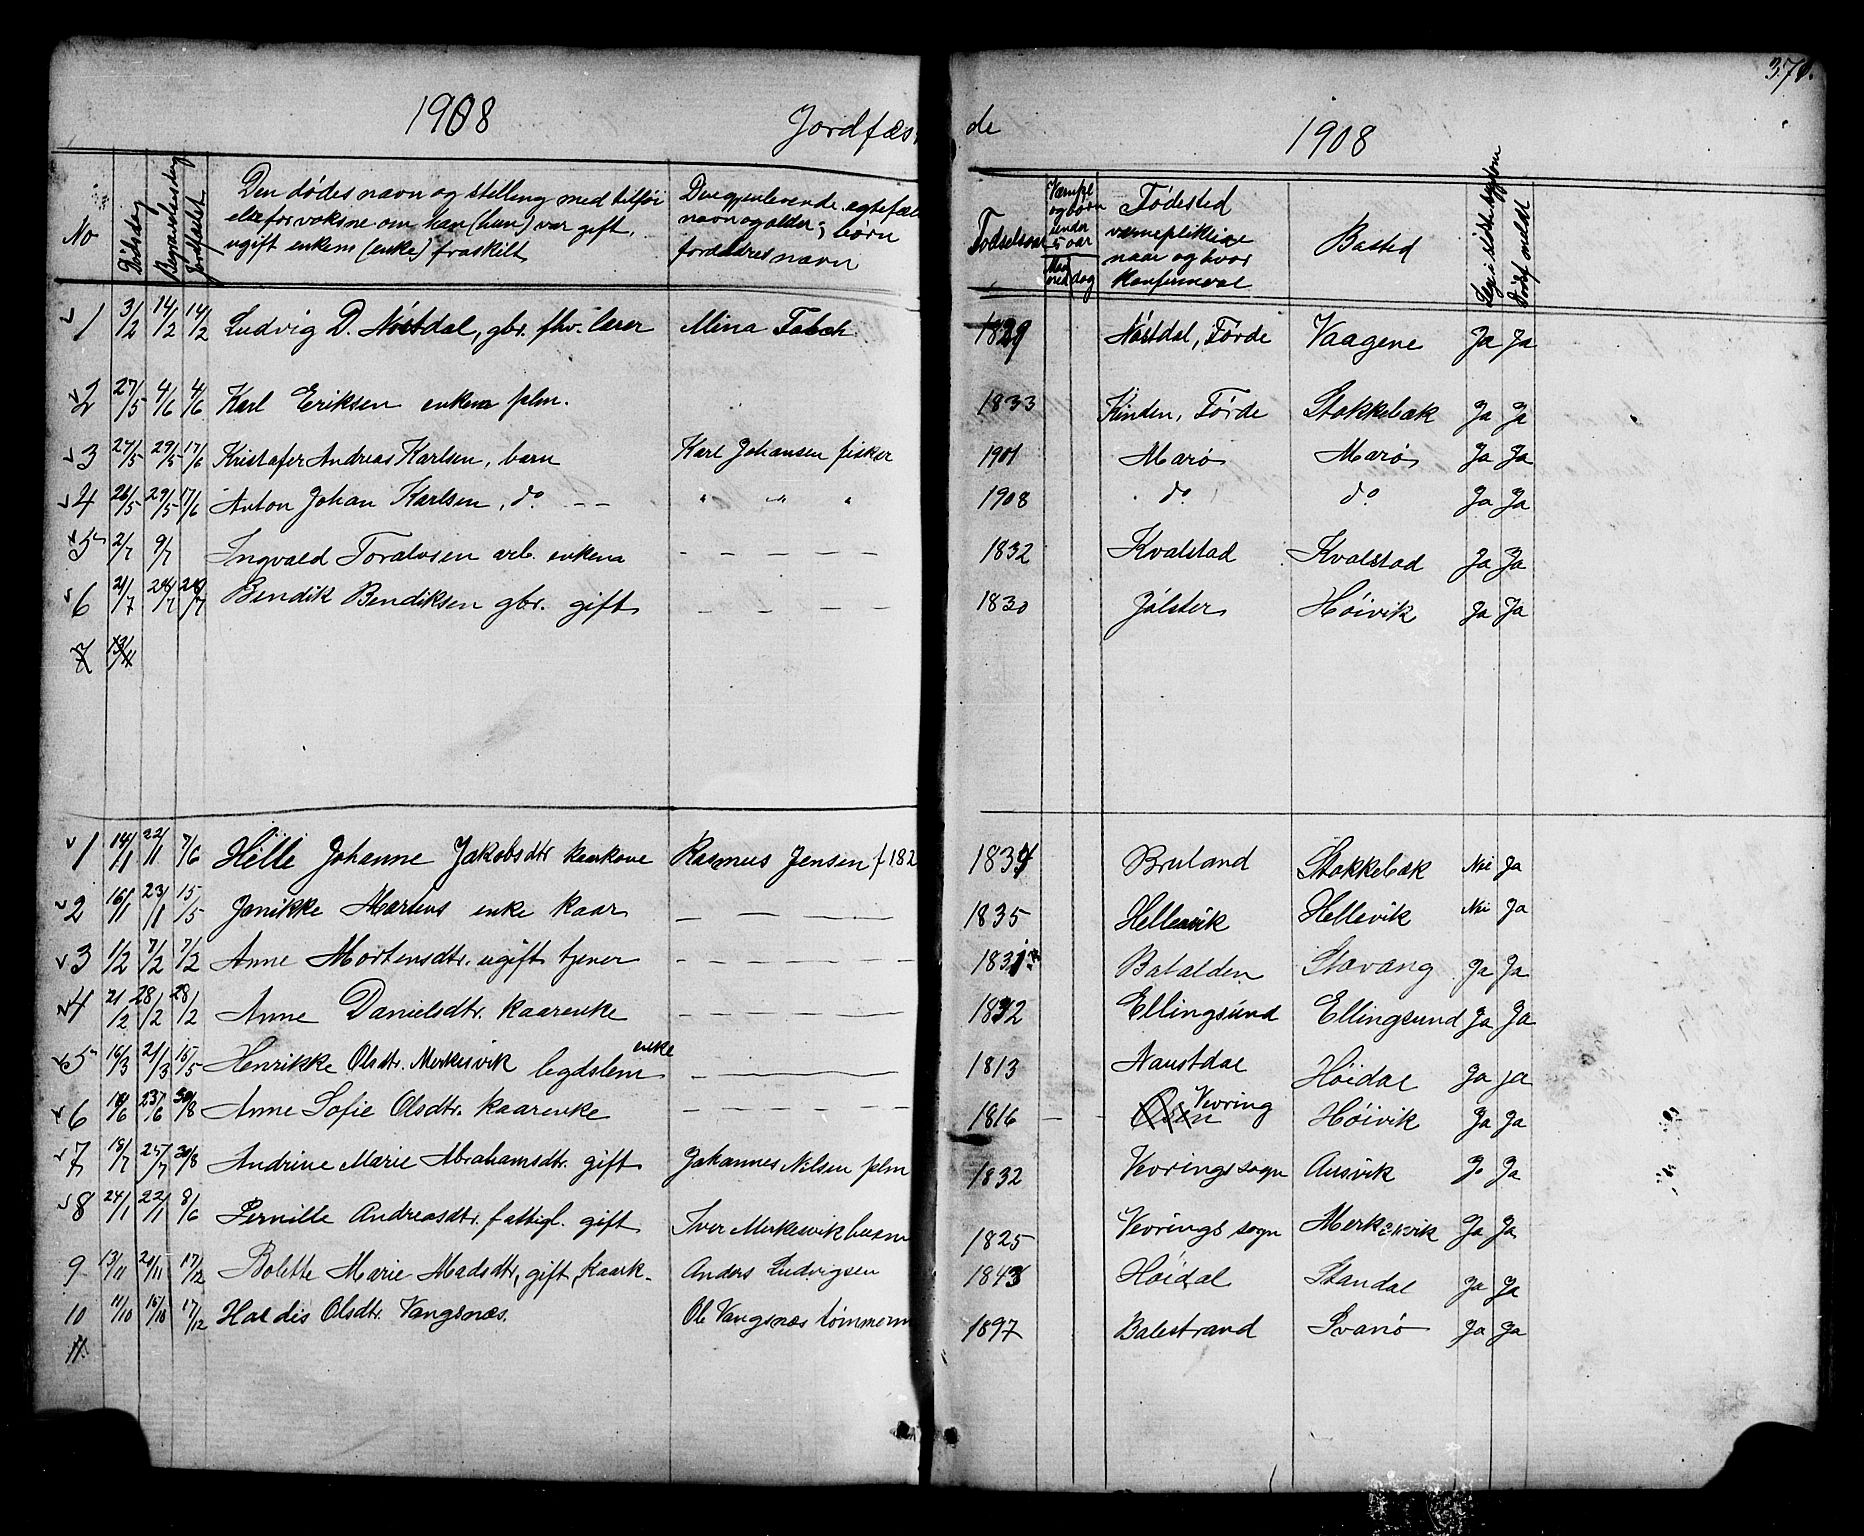 1908 Jordfæs
de 1908 370.
No
Dødsdag
Begravelsesdag
Jordfæstet
Den dødes navn og stilling med tilføi
else for voksne om han (hun) var gift,
ugift enkem (enke) fraskilt
Den gjenlevende egtefæl
navn og alder; børn
forældres navn
Fødselsaar
Værnepl
og børn
under
5 aar
dag
Fødested
værnepliktige
naar og hvor
Konfirmeret
Bosted
Dødsf meldt
1 3/2 14/2 14/2 Ludvig D. Nøstdal, gbr. fhv. lærer Mina Tabak 1829 Nøstdal, Førde Vaagene Ja Ja
2 27/5 4/6 4/6 Karl Eriksen enkem plm. 1833 Kinden, Førde Stokkebæk Ja Ja
3 27/5 29/5 17/6 Kristofer Andreas Karlsen, barn Karl Johansen fisker 1901 Marø Marø Ja Ja
4 26/5 29/5 17/6 Anton Johan Karlsen, do. - - " " " 1908 do do Ja Ja
5 2/7 9/7 Ingvald Toralvsen arb. enkem - - - - - 1832 Kvalstad Kvalstad Ja Ja
6 21/7 28/7 28/7 Bendik Bendiksen gbr. gift - - - - - 1830 Jølster Høivik Ja Ja
7 13/11
1 14/1 22/1 7/6 Hille Johanne Jakobsdtr kaarkone Rasmus Jensen f 182 1834 Bruland Stokkebæk Nei Ja
2 16/1 23/1 15/5 Janikke Martens enke kaar - - - - 1835 Hellevik Hellevik Nei Ja
3 1/2 7/2 7/2 Anne Mortensdtr. ugift tjener - - - - - - 1831 Batalden Stavang Ja Ja
4 21/2 28/2 28/2 Anne Danielsdtr. kaarenke - - - - - 1832 Ellingsund Ellingsund Ja Ja
5 16/3 21/3 15/5 Henrikke Olsdtr. Merkesvik legdslem enke - - - - 1813 Naustdal Høidal Ja ja
6 18/6 23/6 30/8 Anne Sofie Olsdtr. kaarenke - - - - - - 1816 - - Osen Vevring Høivik Ja Ja
7 19/7 25/7 30/8 Andrine Marie Abrahamsdtr. gift Johannes Nilsen plm 1832 Vevrings sogn Ausvik Ja Ja
8 24/1 22/1 8/6 Pernille Andreasdtr. fattigl. gift Iver Merkesvik husm 1825 Vevrings sogn Merkesvik Ja Ja
9 13/11 20/11 17/12 Bolette Marie Madsdtr, gift, Kaark. Anders Ludvigsen 1843 Høidal Standal Ja Ja
10 11/10 15/10 17/12 Haldis Olsdtr. Vangsnæs. Ole Vangsnæs tømmerm 1897 Balestrand Svanø Ja Ja
11.